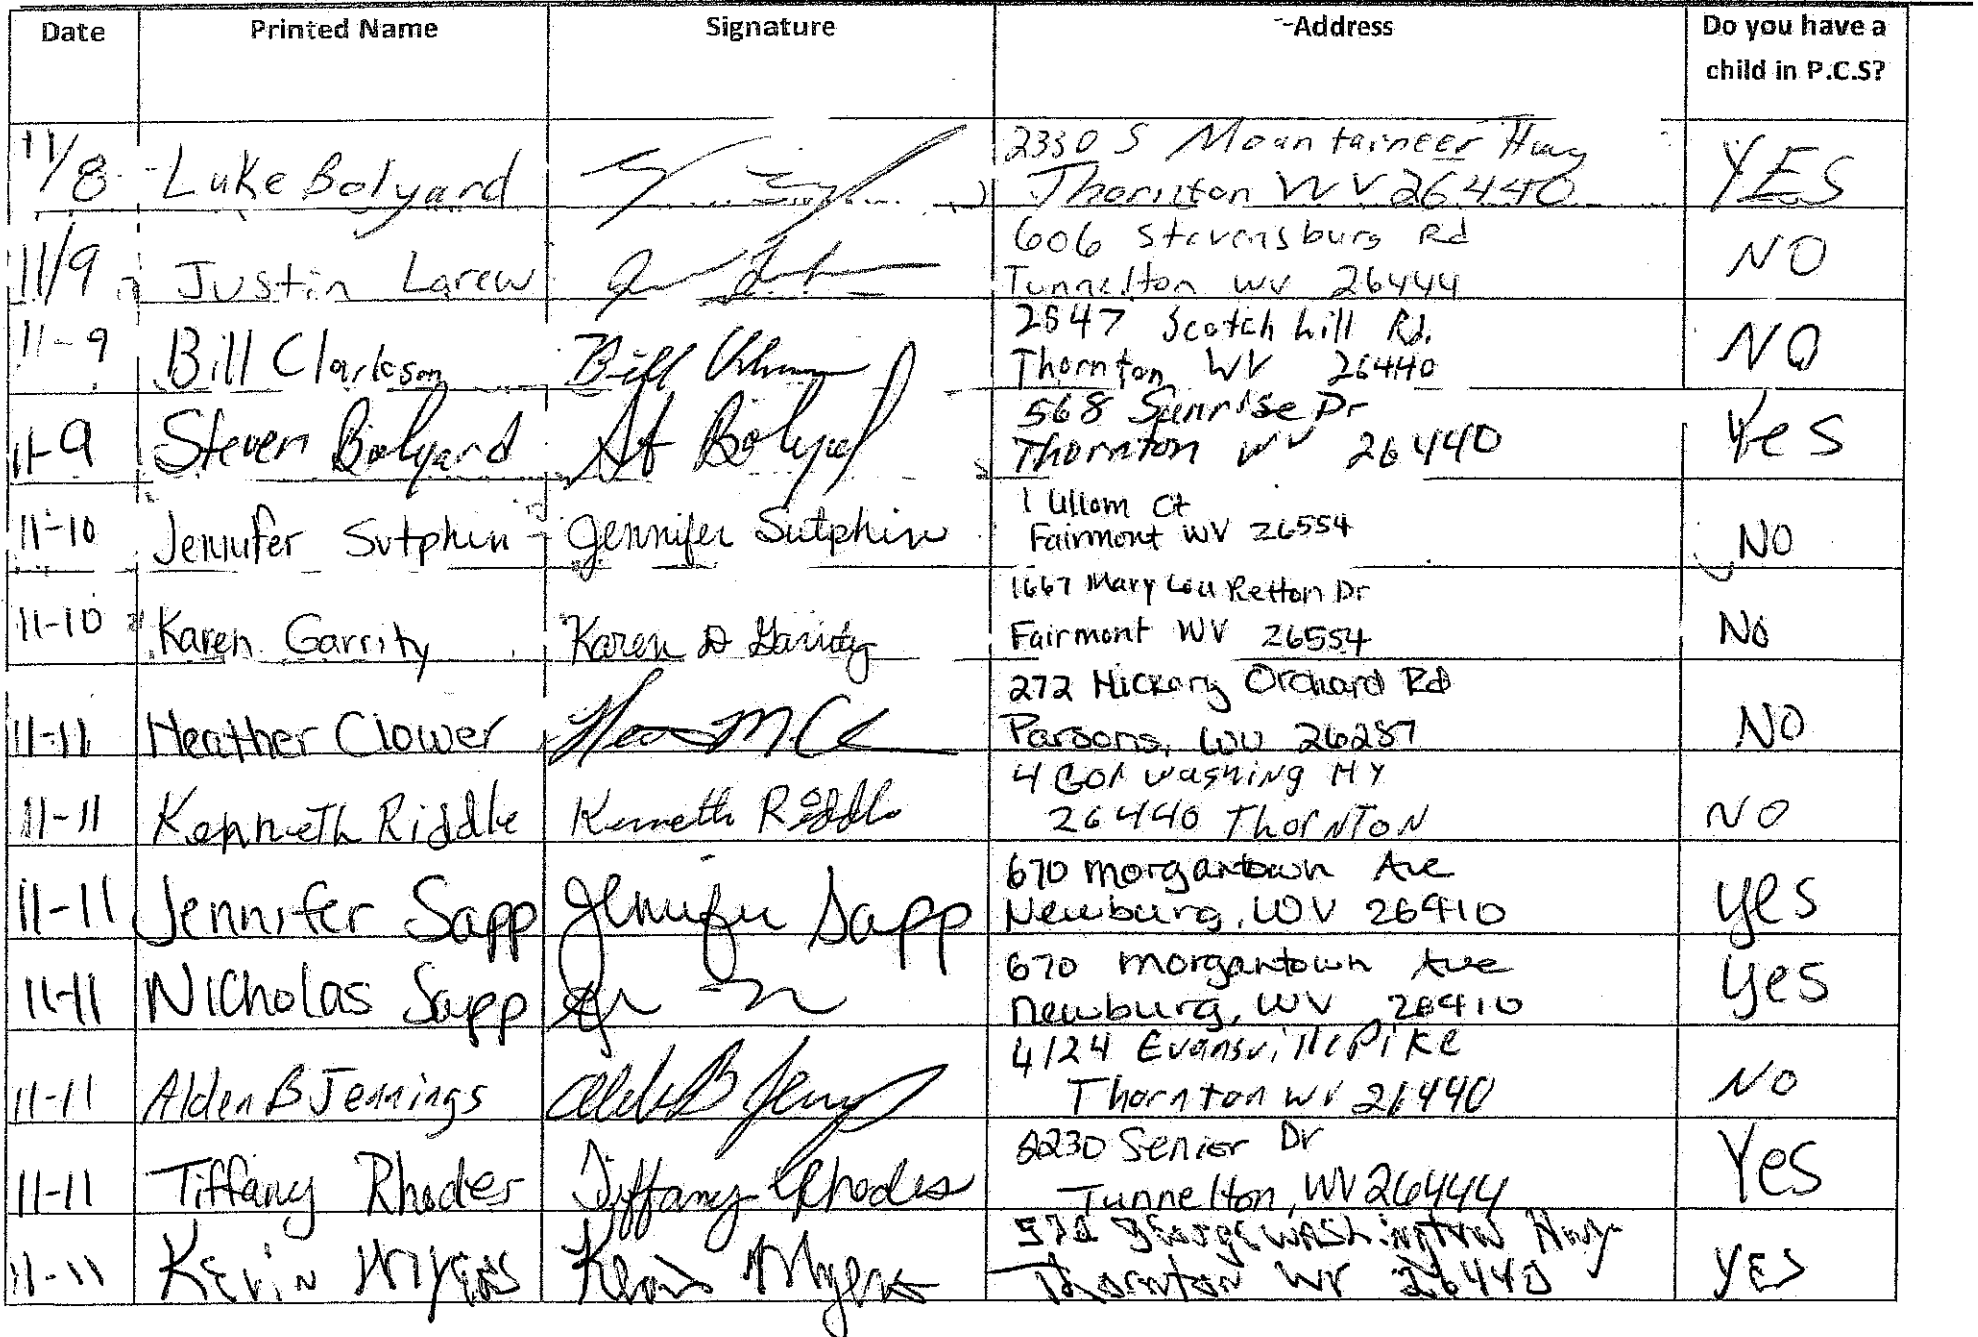 Date Printed Name Signature Address Do you have a
child in P.C.S?
11/8 Luke Bolyard 2330 S Mountaineer Hwy
Thornton WV 26440 YES
11/9 Justin Larew 606 Stevensburg Rd
Tunnelton WV 26444 NO
11-9 Bill Clarkson Bill 2847 Scotch hill Rd.
Thornton WV 26440 NO
11-9 Steven Bolyard St Bolyard 568 Sunrise Dr
Thornton WV 26440 Yes
11-10 Jennifer Sutphin Jennifer Sutphin 1 Ullom Ct
Fairmont WV 26554 NO
11-10 Karen Garrity Karen D Garrity 1667 Mary Lou Retton Dr
Fairmont WV 26554 No
11-11 Heather Clower 272 Hickory Orchard Rd
Parsons, WV 26287 NO
11-11 Kenneth Riddle Kenneth Riddle 4 washing HY
26440 ThorNToN NO
11-11 Jennifer Sapp Jennifer Sapp 670 morgantown Ave
Newburg, WV 26410 yes
11-11 Nicholas Sapp 670 morgantown Ave
newburg, WV 26410 yes
11-11 Alden B Jennings Alden B 4124 Evansville Pike
Thornton WV 26440 No
11-11 Tiffany Rhodes Tiffany Rhodes 2230 Senior Dr
Tunnelton, WV 26444 Yes
11-11 Kevin Myers Kevin Myers George Washington Hwy
Thornton WV 26440 YES